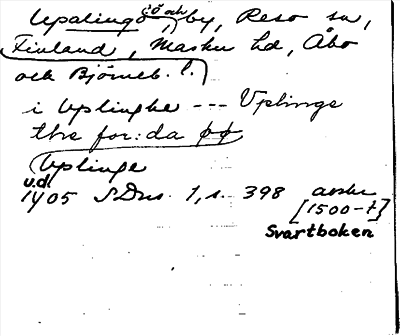 Upalingö, ö och by, Reso sn,
Finland, Masku hd, Åbo
och Björneb. l.
i Vplinghe --- Vplinge
the for:da øø
Vplinge
u.d.
1405 SDns. 1, s. 398 avskr
[1500-t]
Svartboken